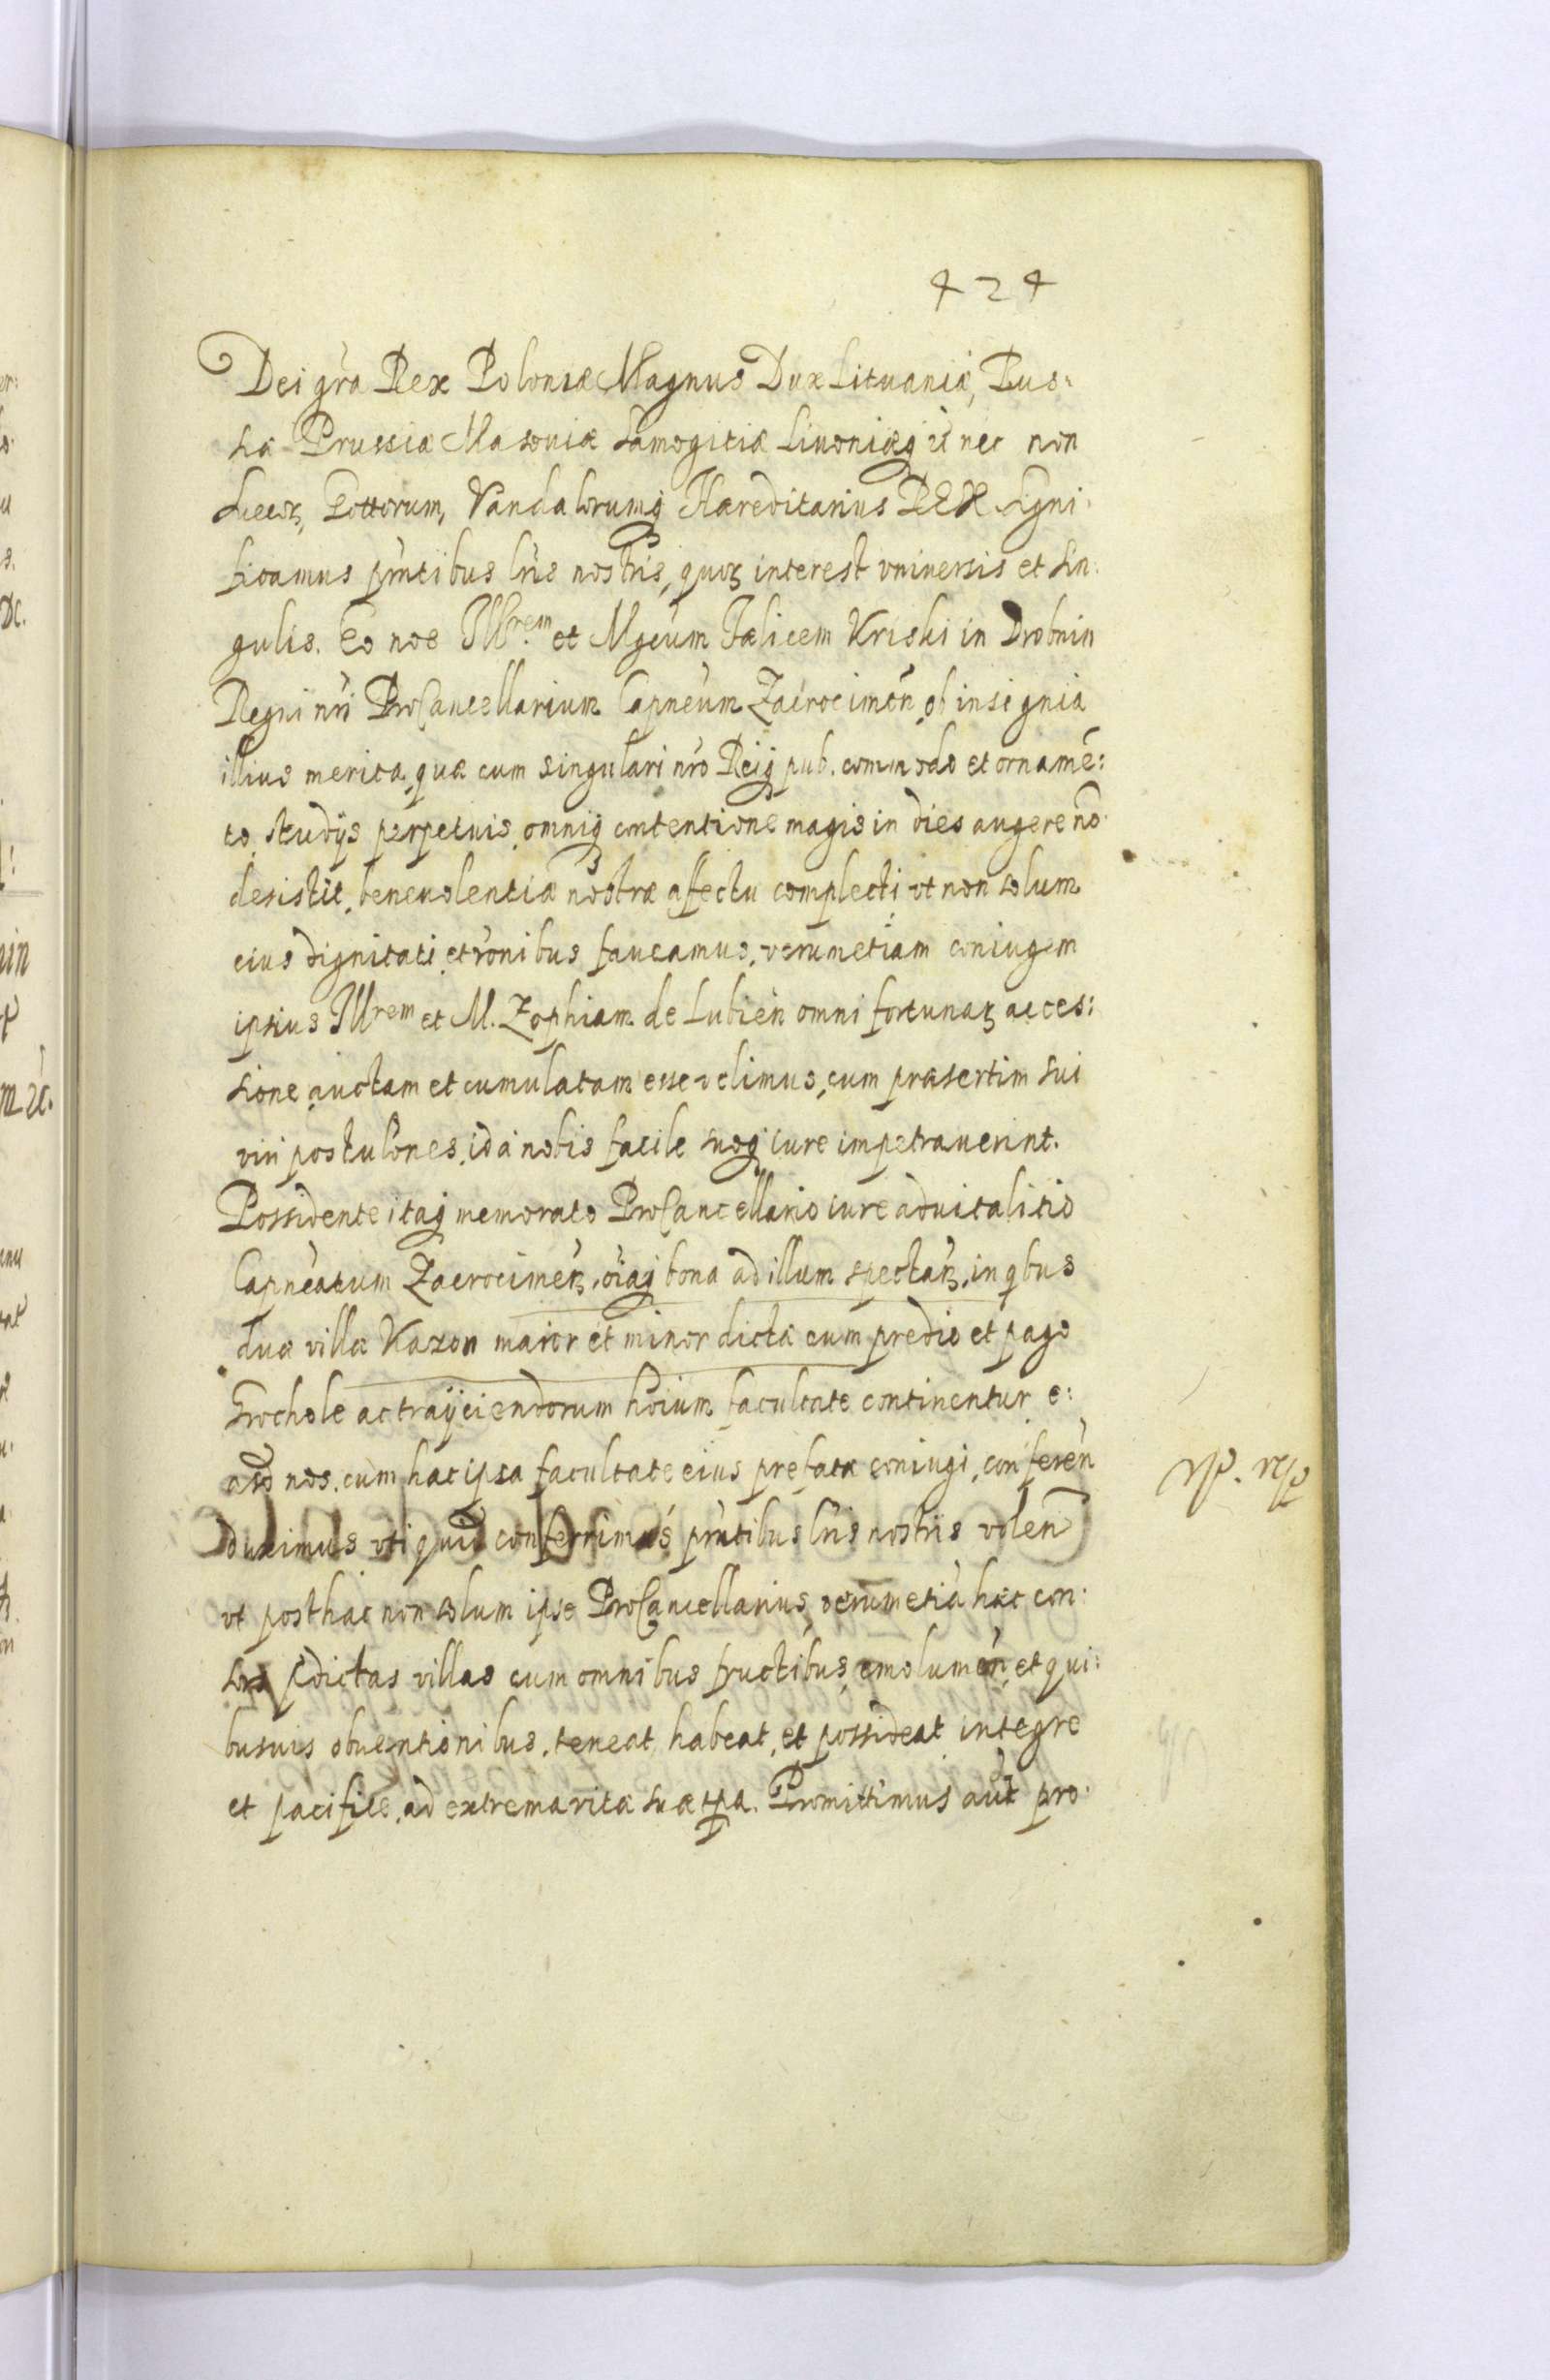 424
Dei gr̃a Rex Poloniæ Magnus Dux Lituaniæ, Rus:
siæ Prussiæ Masouiæ Samogitiæ Liuoniæq̃ zc̃ nec non
Suecoꝝ, Gottorum, Vandalorumq̃ Hæreditarius REX Signi:
ficamus pr̃ntibus lr̃is nostris, quoꝝ interest vniuersis et sin:
gulis. Eo nos Illrem et Mgcum Fælicem Kriski in Drobnin
Regni nr̃i ProCancellarium Capneum Zacrocimen̄, ob insignia
illius merita, quæ cum singulari nr̃o Reiq̃ pub. commodo et orname̅:
to, studijs perpetuis, omniq̃ contentione magis in dies augere no̅
desistit, beneuolentiæ nostræ affectu complecti, vt non solum
eius dignitati, et r̃onibus faueamus, verumetiam coniugem
ipsius Illrem et M. Zophiam de Lubien omni fortunaꝝ acces:
sione, auctam et cumulatam esse velimus, cum præsertim sui
viri postul̃ones, id à nobis facile suoq̃ iure impetrauerint.
Possidente itaq̃ memorato ProCancellario iure aduitalitio
Capneatum Zacrocimen̄, oĩaq̃ bona ad illum spectan̄, in qbus
duæ villæ Kazon maior et minor dictæ cum predio et pago
Grochole ac traijciendorum hoĩum facultate continentur, e:
as nos, cum hac ipsa facultate eius prefatæ coniugi, conferen̄
duximus vti quid conferrimus pr̃ntibus lr̃is nostris volen̄
vt posthac non solum ipse ProCancellarius, verumetia̅ hæc con:
sors p̃dictas villas cum omnibus fructibus, emolumen̄, et qui:
busuis obuentionibus, teneat, habeat, et possideat integre
et pacifice, ad extrema vitæ suæ tp̃a. Promittimus aũt pro: